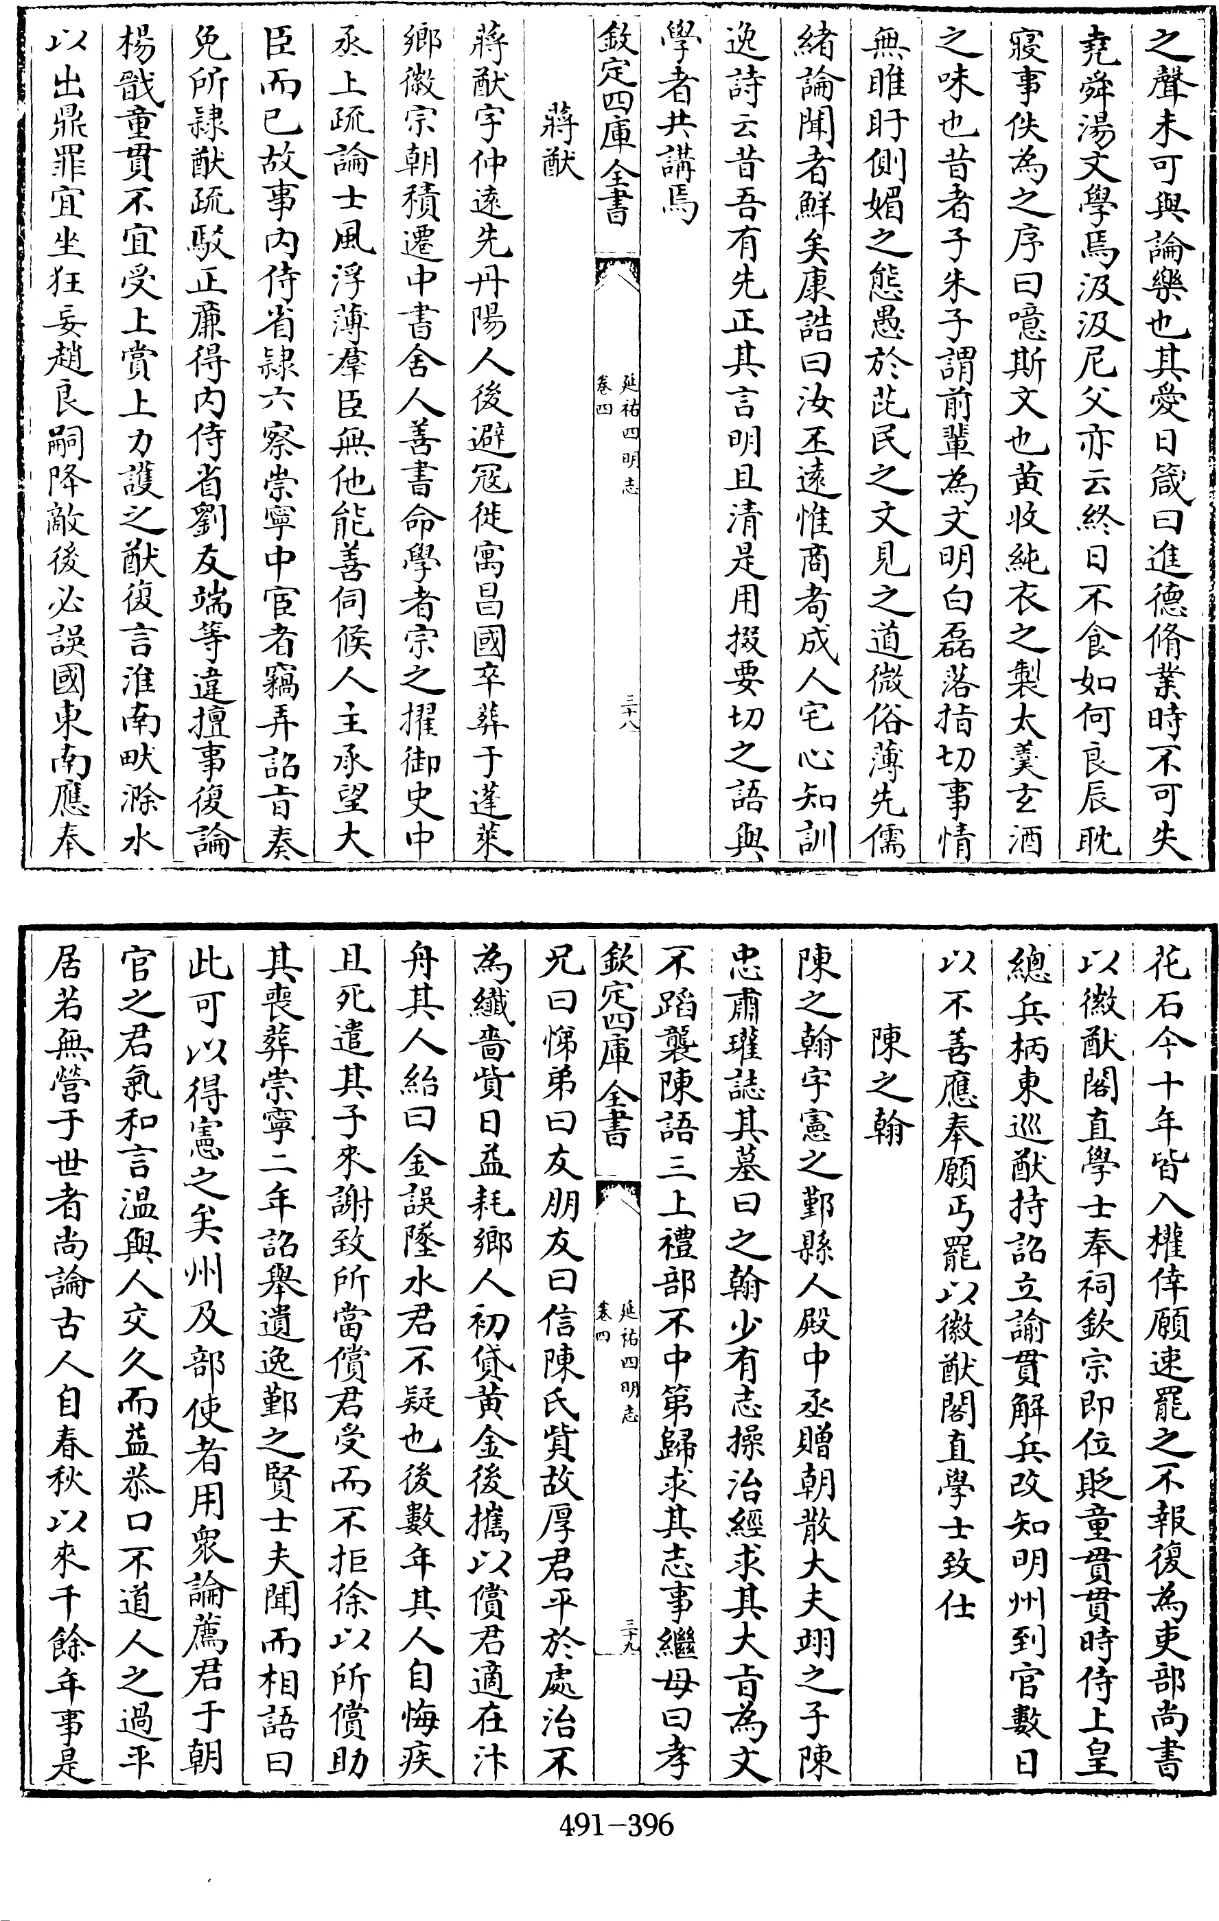 之聲未可與論樂也其愛日箴曰進德脩業時不可失
堯舜湯文學焉汲汲尼父亦云終日不食如何良辰耽
寢事佚為之序曰噫斯文也黄收純衣之製太羹玄酒
之味也昔者子朱子謂前輩為文明白磊落指切事情
無睢盱側媚之態愚於芘民之文見之道微俗薄先儒
緒論聞者鮮矣康誥曰汝丕遠惟商耇成人宅心知訓
逸詩云昔吾有先正其言明且清是用掇要切之語與
學者共講焉
欽定四庫全書
延祐四明志
卷四
三十八
蔣猷
蔣猷字仲遠先丹陽人後避冦徙寓昌國卒葬于蓬萊
鄉徽宗朝積遷中書舍人善書命學者宗之擢御史中
丞上疏論士風浮薄羣臣無他能善伺候人主承望大
臣而已故事内侍省隷六察崇寧中宦者竊弄詔旨奏
免所隷猷疏駁正亷得内侍省劉友端等違擅事復論
楊戩童貫不宜受上賞上力護之猷復言淮南畎滁水
以出鼎罪宜坐狂妄趙良嗣降敵後必誤國東南應奉
花石今十年皆入權倖願速罷之不報復為吏部尚書
以徽猷閣直學士奉祠欽宗即位貶童貫貫時侍上皇
總兵柄東巡猷持詔立諭貫解兵改知明州到官數日
以不善應奉願丐罷以徽猷閣直學士致仕
陳之翰
陳之翰字憲之鄞縣人殿中丞贈朝散大夫翊之子陳
忠肅瓘誌其墓曰之翰少有志操治經求其大旨為文
不蹈襲陳語三上禮部不中第歸求其志事繼母曰孝
欽定四庫全書
延祐四明志
卷四
三十九
兄曰悌弟曰友朋友曰信陳氏貲故厚君平於處治不
為纎嗇貲日益耗鄉人初貸黄金後攜以償君適在汴
舟其人紿曰金誤墜水君不疑也後數年其人自悔疾
且死遣其子來謝致所當償君受而不拒徐以所償助
其喪葬崇寧二年詔舉遺逸鄞之賢士夫聞而相語曰
此可以得憲之矣州及部使者用衆論薦君于朝
官之君氣和言温與人交久而益恭口不道人之過平
居若無營于世者尚論古人自春秋以來千餘年事是
491-396